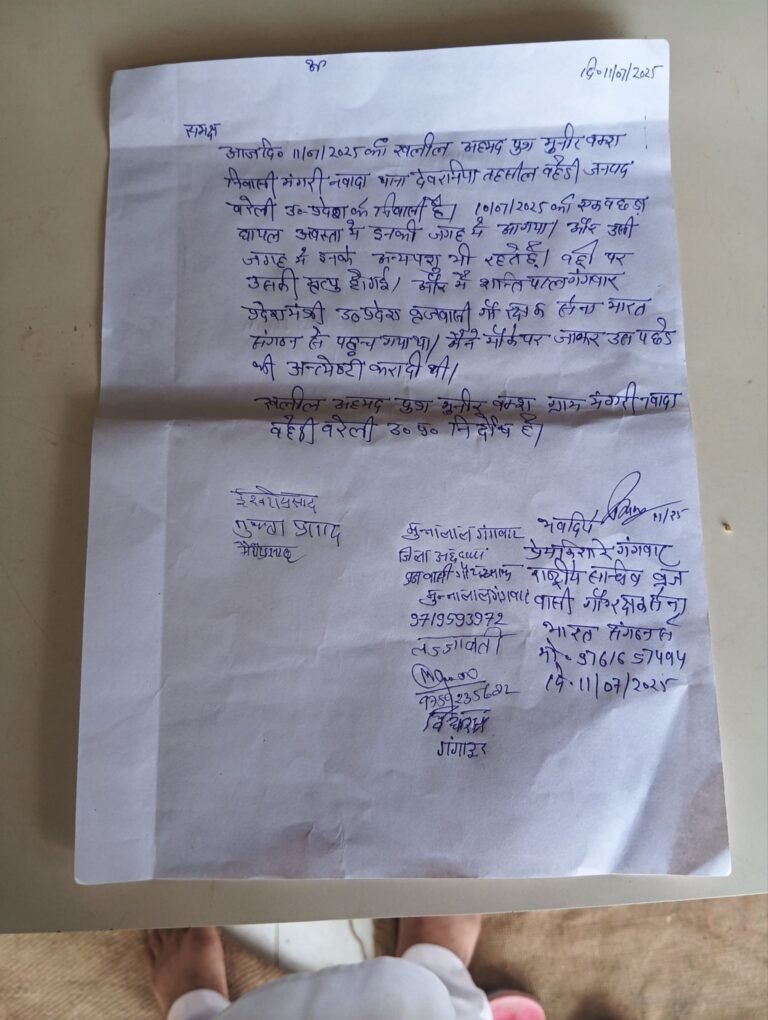 ॐ
दि० 11/07/2025
समक्ष
आज दि० 11/07/2025 को खलील अहमद पुत्र मुनीर बक्श
निवासी मंगरी नवादा थाना देवरानिया तहसील बहेडी जनपद
बरेली उ०प्रदेश का निवासी है। 10/07/2025 को एक बछड़ा
घायल अवस्ता में इनकी जगह में आगया। और उसी
जगह में इनके अन्य पशु भी रहते हैं। वहीं पर
उसकी मृत्यु हो गई। और मैं शान्ति पाल गंगवार
प्रदेश मंत्री उ० प्रदेश बृजवासी गौ रक्षक सेना भारत
संगठन से पहुच गया था। मैने मौके पर जाकर उस
की अन्त्येष्टी करा दी थी।
खलील अहमद पुत्र मुनीर बक्श ग्राम मंगरी नवादा
बहेडी बरेली उ० प्र० निर्दोष है।
ईश्वरी प्रसाद
प्रसाद
मुन्नालाल गंगवार
जिला अध्यक्ष
मुन्नालाल गंगवार
9719593972
लज्जावती
गंगवार
भवदिय
11/25
प्रेम किशोर गंगवार
राष्ट्रीय सचिव बृज
वासी गौ रक्षक सेना
भारत संगठन से
मो०- 9761657494
दि. 11/07/2025